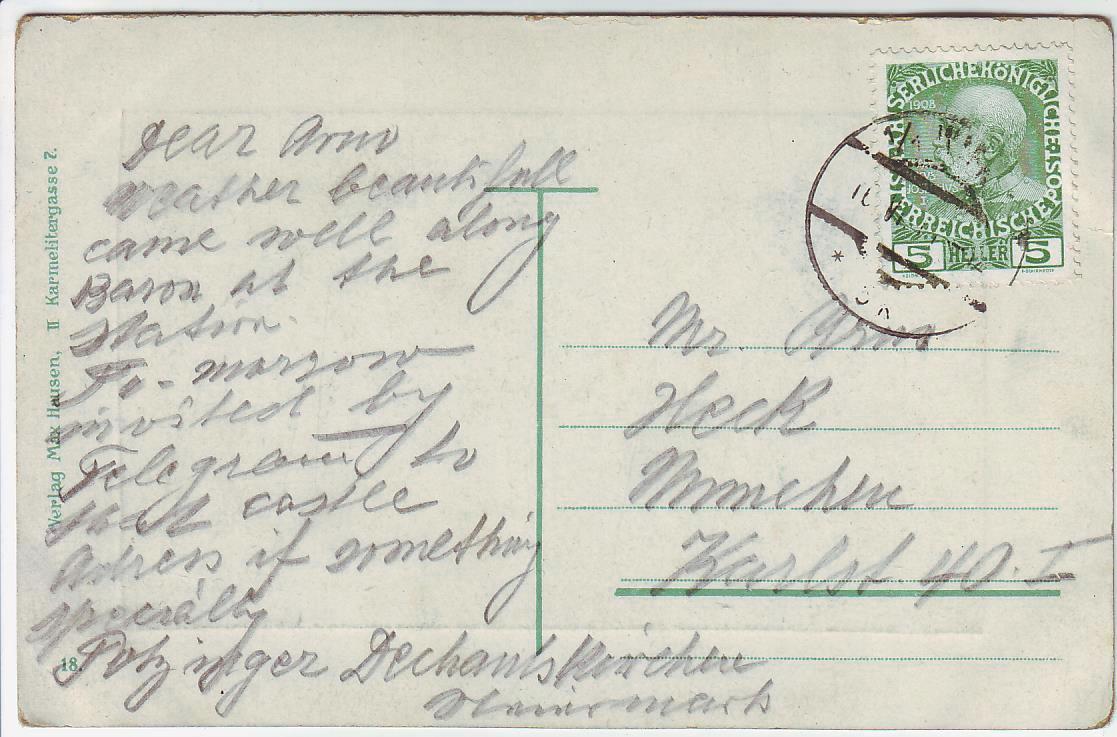 Dear Arno
Weather beautifull
came well along
Baron at the
Station.
To-morrow
invited by
Telegram to
that castle
Adress if something
speciälly
Potzinger Dechantskirchen
Steiermark
Mr. Arno
Heck
München
Karlst. 40. I
Verlag Max Hausen, II Karmelitergasse 7.
18.
KAISERLICHE KÖNIGLICHE
ÖSTERREICHISCHE POST
1908
5 HELLER 5